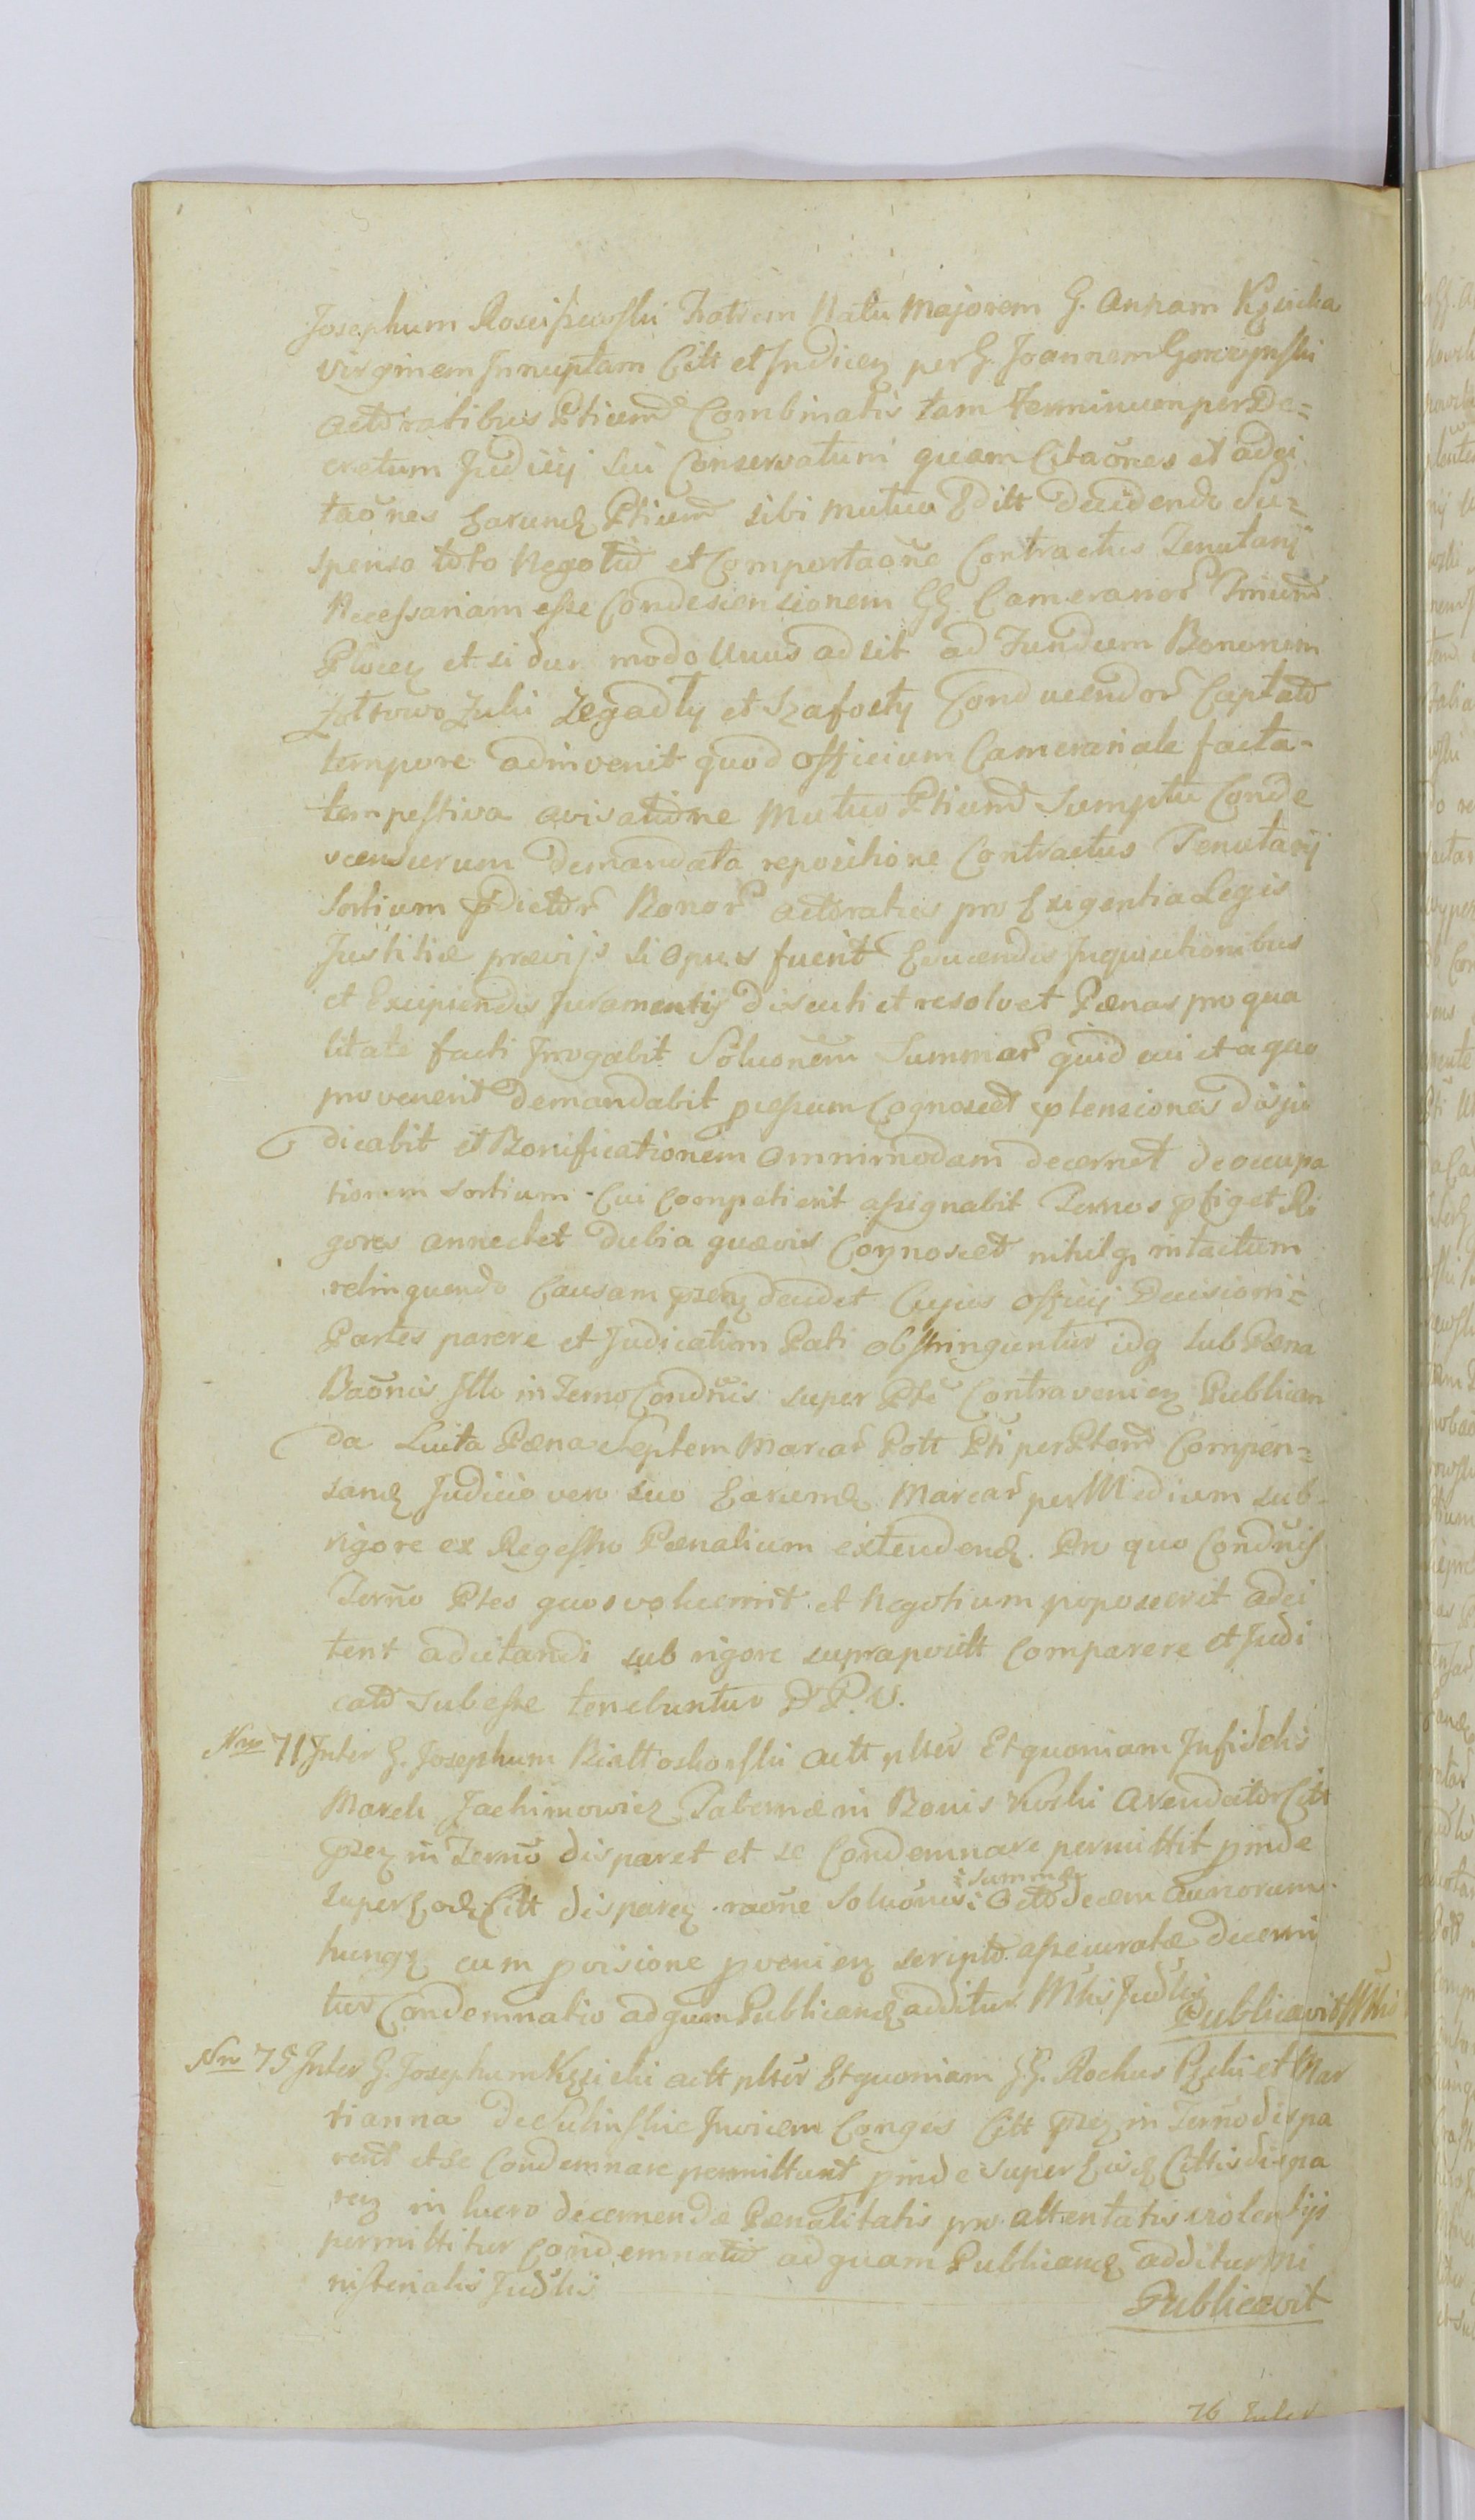 Josephum Rosciszewski Fratrem Natu Majorem G. Annam Kęsicka
virginem Innuptam Citt et Indicen per G. Joannem Gorczynski
actoratibus Ptium Combinatis tam Terminum per De=
cretum Judicij sui Conservatum quam Citaões et adci
taones earund Ptium sibi mutuo Editt decidendo Su=
spenso toto Negotio et Comportaone Contractus Tenutarij
Necessariam esse Condescensionem GG Camerarior
Plocen et si dur modo Unus adsit ad Fundum Bonorum
Zulii Zegadły et Szafosty Conducendor Captato
tempore adinvenit quod officium Camerariale facta
tempestiva avisatione mutuo Ptium Sumptu Conde
scensurum demandata repositione Contractus Tenutarij
Sortium pdictor Bonor actoratus pro Exigentia Legis
Justitiæ prævijs si opus fuerit Educendis Inquisitionibus
et Excipiendis Juramentis discutiet resolvet Pænas pro qua
litate facti Irrogabit Soluonem Summar quid cui et a quo
provenerit demandabit pressum Cognoscet ptensiones dijju
dicabit et Bonificationem omnimodam decernet deoccupa
tionem sortium Cui Competierit assignabit Ternos pfiget Ri
gores annectet dubia quævis Cognoscet nihilq intactum
relinquendo Causam pzen decidet Cujus officij Decisioni
Partes parere et Judicatum Pati obstringuntur idq sub Pæna
Baonis Itto in Terno Condnis super Pte Contravenien Publican
da Luita Pæna Septem Marcar Pott Pti per Ptem Compen=
sand Judicio vero suo Earumd Marcar per Medium sub
rigore ex Regestro Pænalium extendend. Pro quo Condnis
Terno Ptes quos voluerint et Negotium poposcerit adci
tent adcitandi sub rigore supraposit comparere et Judi
cato subesse tenebuntur D.P.V.
Nro 71 Inter G. Josephum Biattoskorski actt plter Et quoniam Infidelis
Marek Jachimowicz Tabernæ in Bonis Kuski arendator Citt
pzen in Terno disparet et se Condemnare permittit pinde
super Eod Citt disparen raone Soluonis : Summæ : Octodecem aureorum
hung cum pvisione pvenien scripto assecuratæ decerni
tur Condemnatio ad quam Publicand additur Mtlis Judlis
Publicavit Mtlis
Nro 75 Inter G. Josephum Kęsicki actt plter Et quoniam G.G. Rochus et Mar
tianna de Sulinskie Invicem Conges Citt pzen in Terno dispa
rent et se Condemnare permittunt pinde super Eisd Cittis dispa
ren in lucro decernendæ Pænalitatis pro attentatis violentijs
permittitur Condemnatio ad quam Publicand additur Mi
nisterialis Judlis
Publicavit
76 Inter